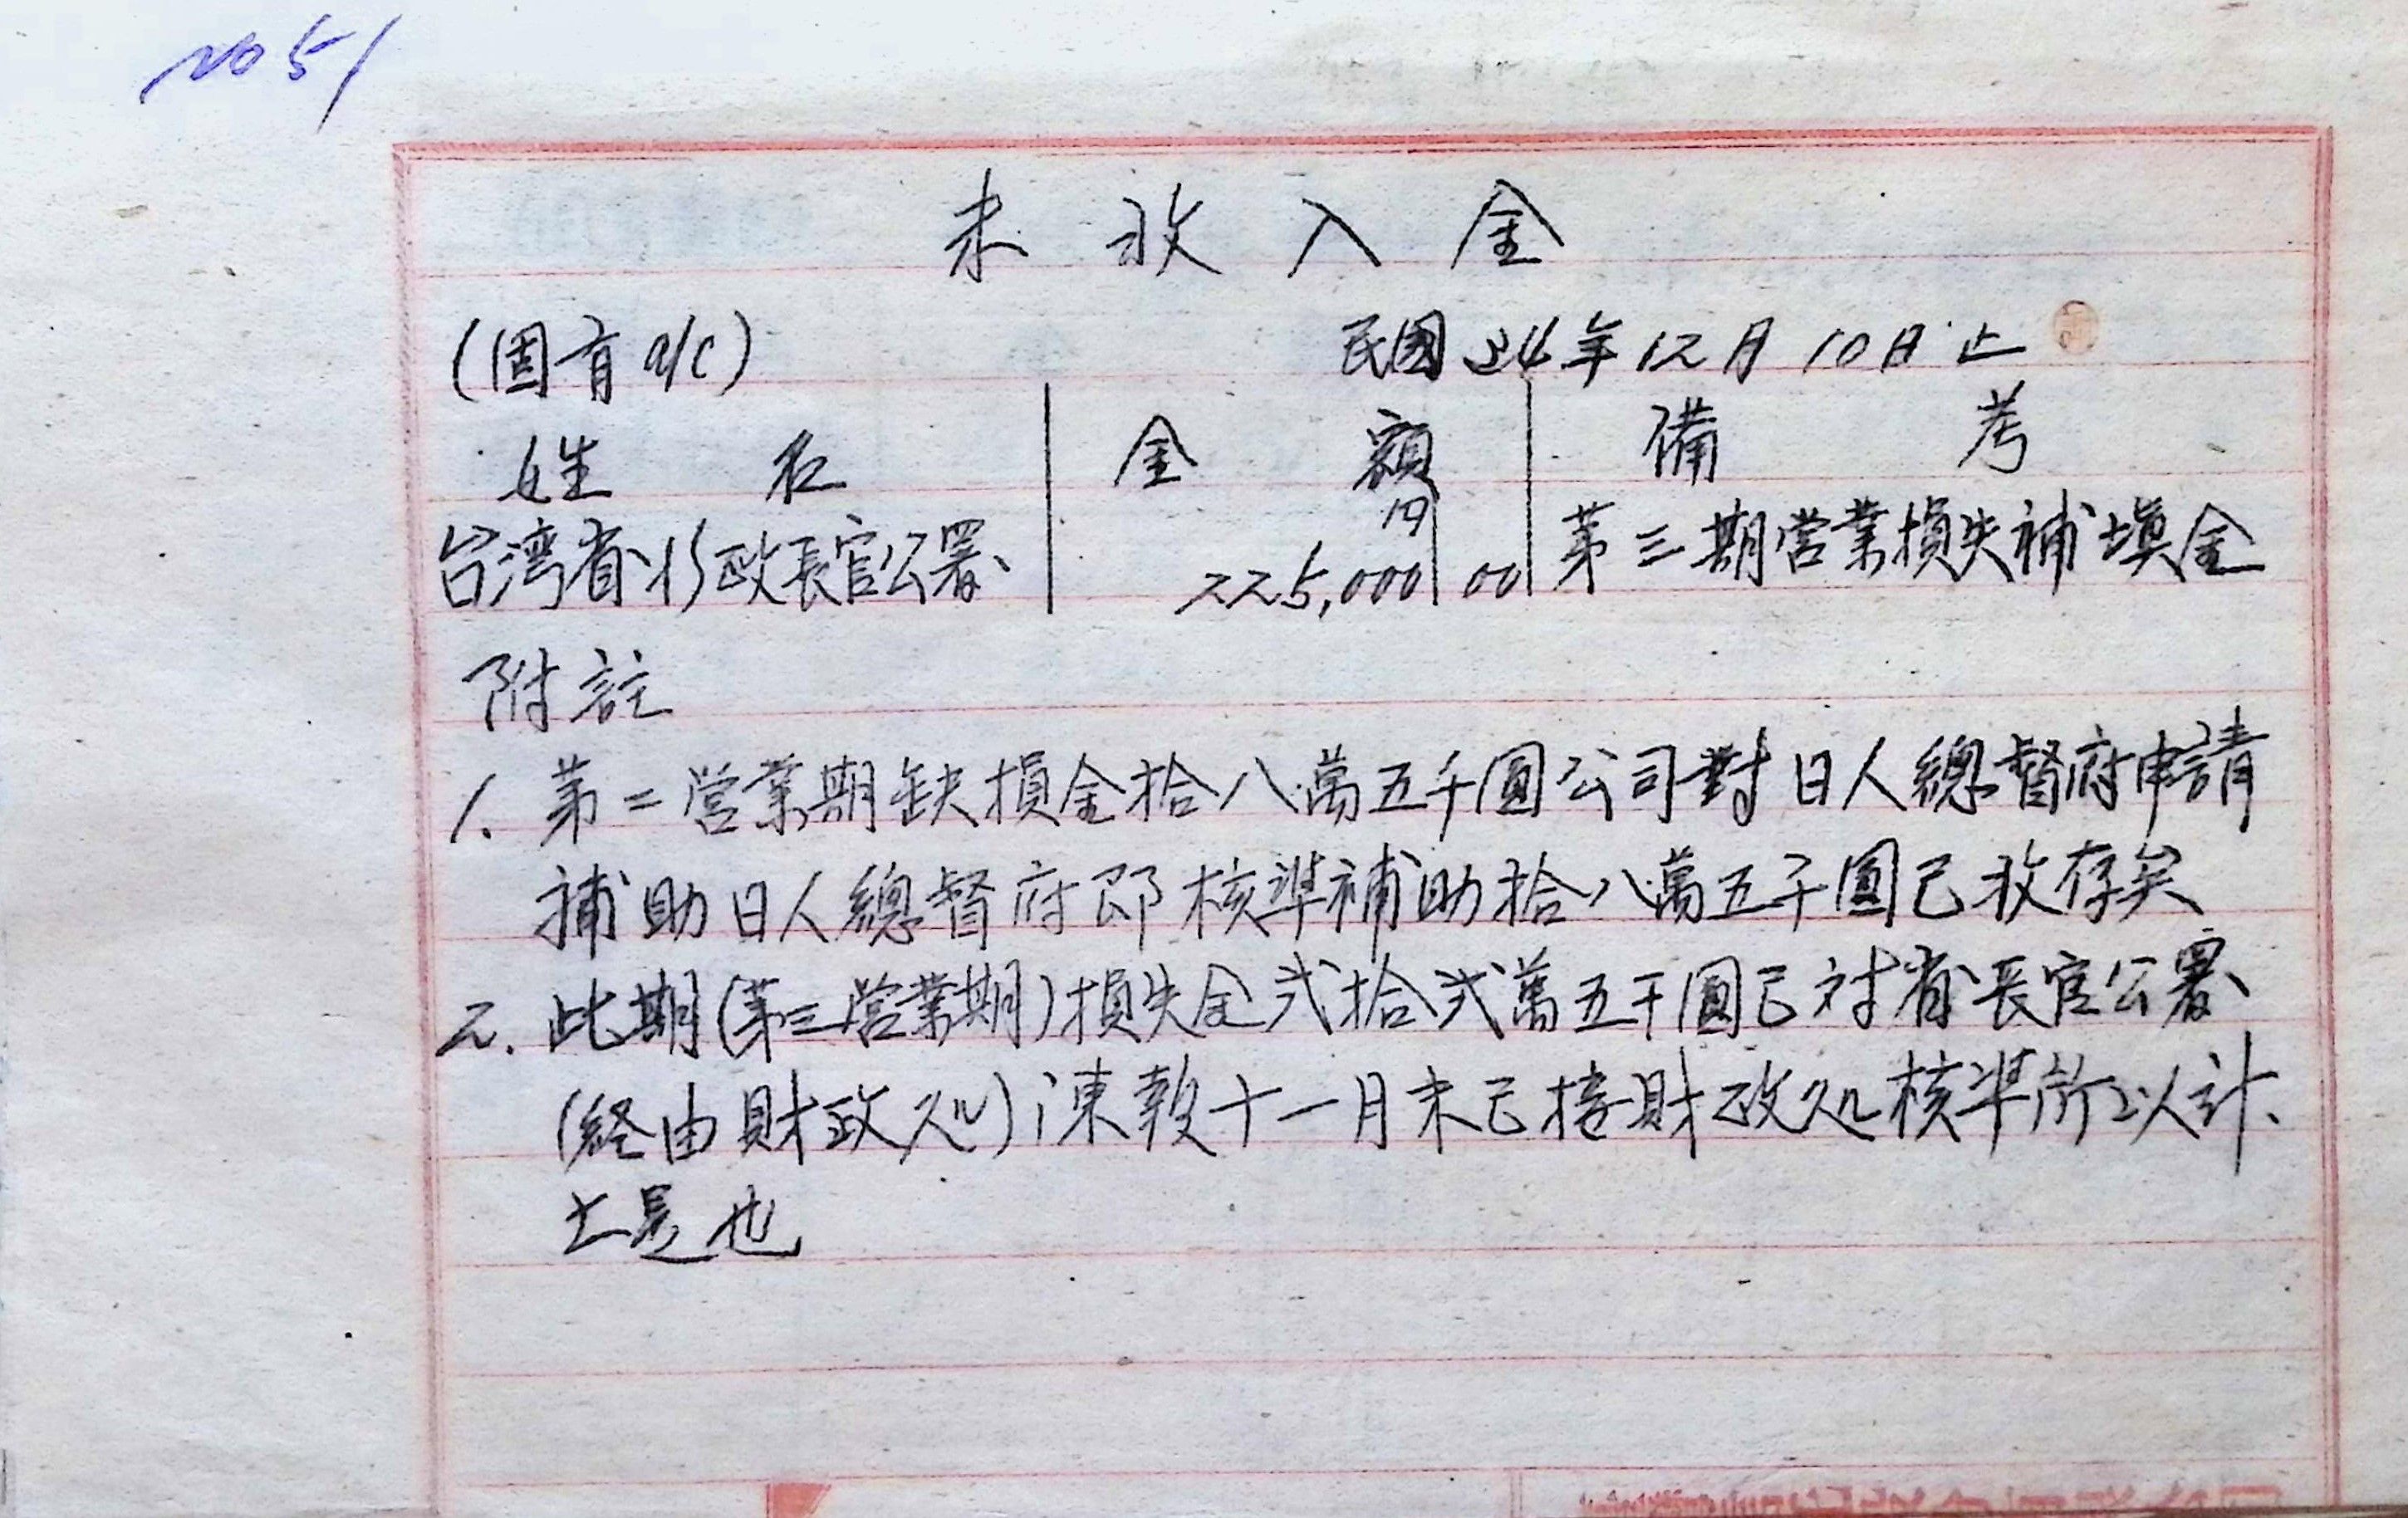 No 51
未收入金
(固有a/c) 民國34年12月10日止
姓名 金額 備考
円
台湾省行政長官公署 225,000 00 第三期営業損失補填金
附註
1. 第二営業期缺損金拾八萬五千圓公司對日人總督府申請
補助日人總督府即核準補助拾八萬五千圓已收存矣
2. 此期(第三営業期)損失金弍拾弍萬五千圓已対省長官公署
(経由財政処)陳報十一月末已接財政処核準所以計
上是也